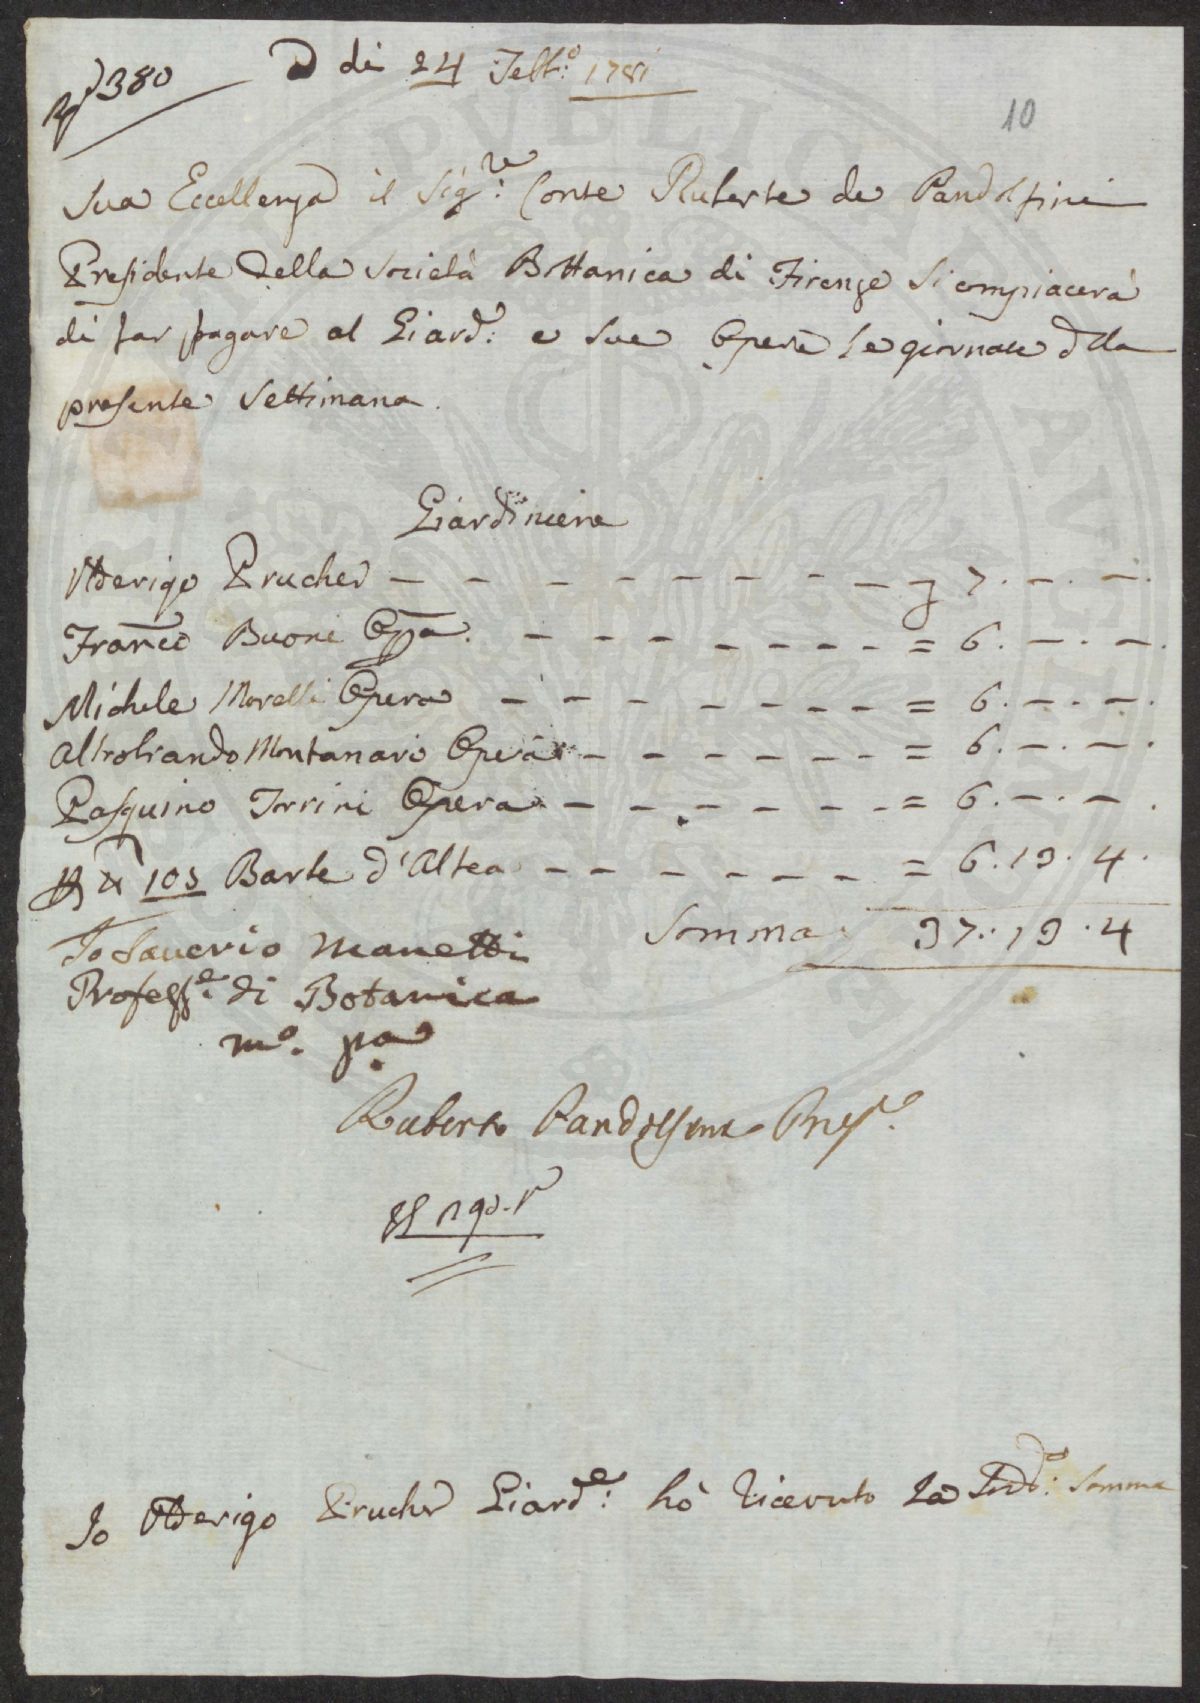 N° 380
A dì 24 Febb:° 1781
10
Sua Eccellenza il Sig:re Conte Ruberte de Pandolfini
Presidente della Società Bottanica di Firenze si compiacerà
di far pagare al Giard:e e sue Opere le giornate della
presente Settimana.
Giardiniere
Aderigo Prucher — — — — — — — — 7. —. —.
Franco Buoni Opa. — — — — — — — = 6. —. —.
Michele Morelli Opera — — — — — — — = 6. —. —.
Altrobrando Montanari Opera — — — — — — = 6. —. —.
Pasquino Torrini Opera — — — — — — = 6. —. —.
103 Barbe d'Altea — — — — — — = 6. 19. 4.
Somma 37. 19. 4
Io Saverio Manetti
Profess:e di Botanica
m°. pa
Ruberto Pandolfini Pres.e
Io Aderigo Prucher Giard:e hò ricevuto La Sud:a Somma